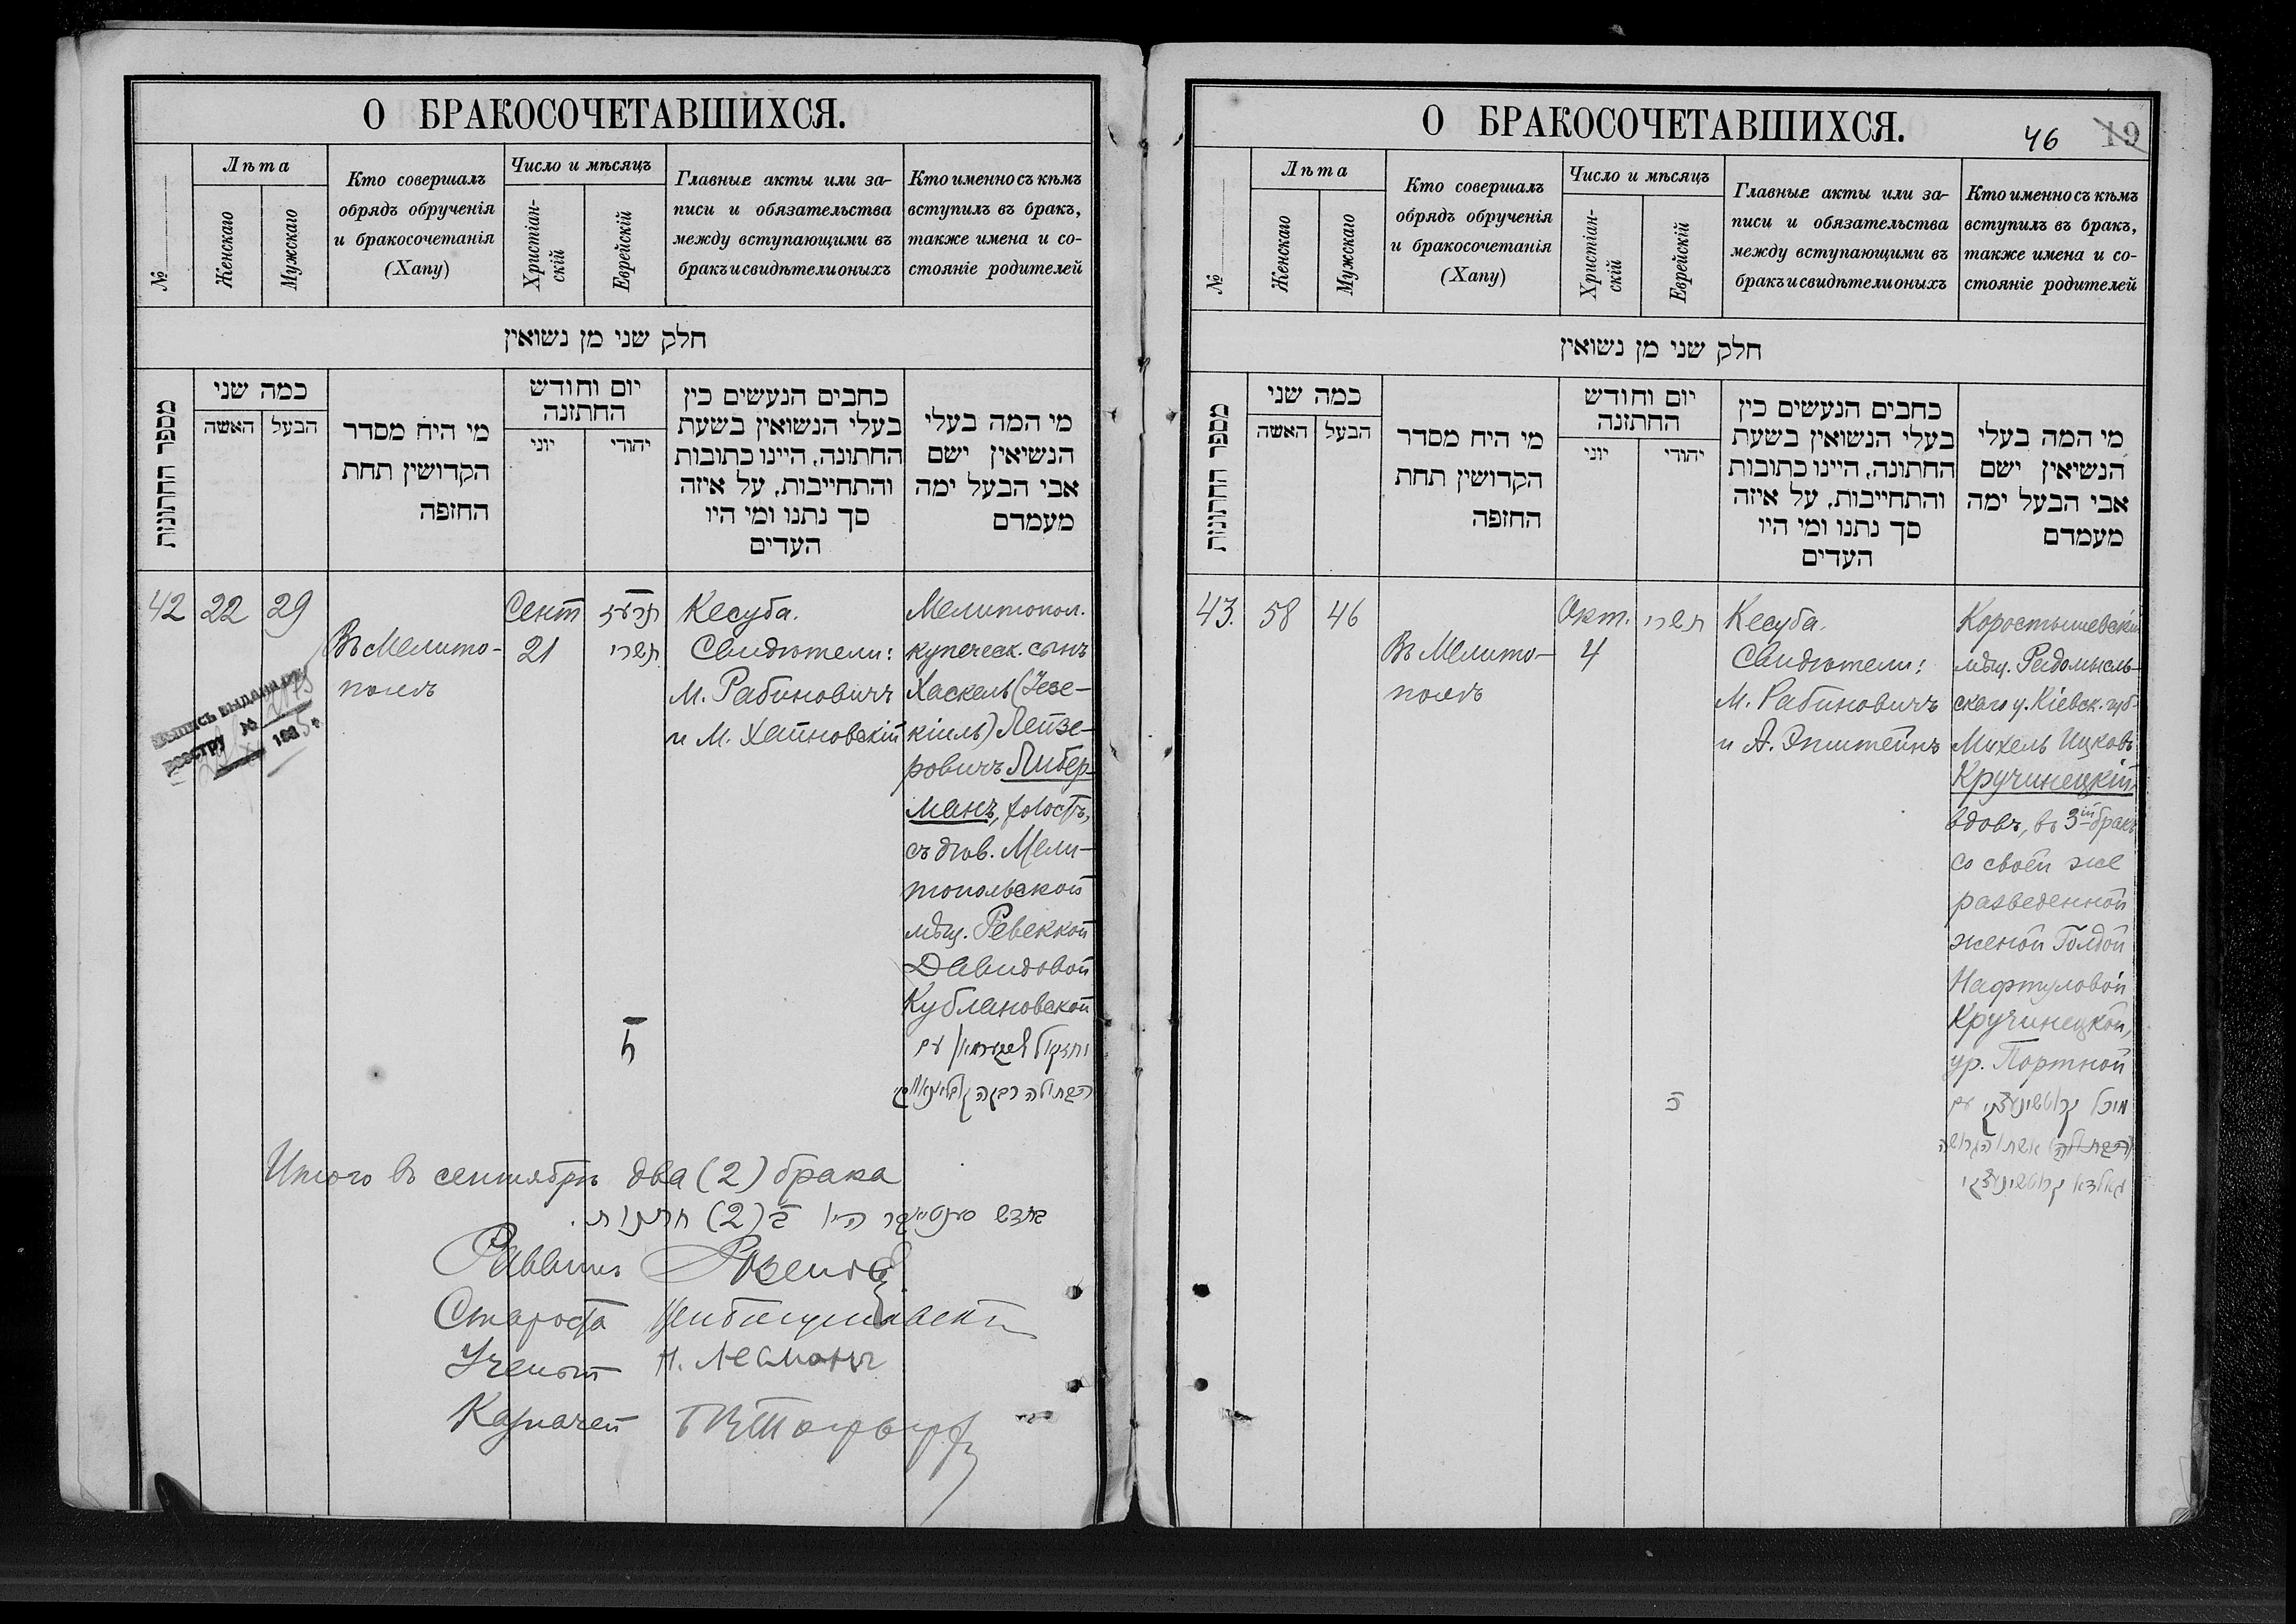 О БРАКОСОЧЕТАВШИХСЯ.
№
Лѣта
Женскаго
Мужскаго
Кто совершалъ
обрядъ обрученія
и бракосочетанія
(Хапу)
Число и мѣсяцъ
Христіан-
скій
Еврейскій
Главные акты или за-
писи и обязательства
между вступающими въ
бракъ и свидѣтели оныхъ
Кто именно съ кѣмъ
вступилъ въ бракъ,
также имена и со-
стояніе родителей
חלק שני מן נשואין
מספר החתונות
כמה שני
האשה
הבעל
מי היח מסדר
הקדושין תחת
החופה
יום וחודש
החתזנה
יוני
יהודי
כחבים הנעשים כין
בעלי הנשואין בשעת
החתונה, היינו כתובות
והתחייבות, על איזה
סך נתנו ומי היו
העדים
מי המה בעלי
הנשיאין ישם
אבי הבעל ימה
מעמדם
42
22
29
Въ Мелито-
полѣ
Сент
21
תשרי
ה
Кесуба.
Свидѣтели:
М. Рабиновичъ
и М. Хайновскій
Мелитопол.
купеческ. сынъ
Хаскель (Іезе-
кіиль) Лейзе-
ровичъ Либер-
манъ, холостъ,
съ дѣв. Мели-
топольской
мѣщ. Ревеккой
Давидовой
Кублановской
יחזקאל ליבערמאן עם
הבתולה רבקה
выпись выдана по
реестру №
Итого въ сентябрѣ два (2) брака
בחדש סענטיאבר היו ב (2) חתונות.
Раввинъ
Староста
Ученый Н. Лесманъ
Казначей
О БРАКОСОЧЕТАВШИХСЯ.
46
19
№
Лѣта
Женскаго
Мужскаго
Кто совершалъ
обрядъ обрученія
и бракосочетанія
(Хапу)
Число и мѣсяцъ
Христіан-
скій
Еврейскій
Главные акты или за-
писи и обязательства
между вступающими въ
бракъ и свидѣтели оныхъ
Кто именно съ кѣмъ
вступилъ въ бракъ,
также имена и со-
стояніе родителей
חלק שני מן נשואין
מספר החתונות
כמה שני
האשה
הבעל
מי היח מסדר
הקדושין תחת
החופה
יום וחודש
החתזנה
יוני
יהודי
כחבים הנעשים כין
בעלי הנשואין בשעת
החתונה, היינו כתובות
והתחייבות, על איזה
סך נתנו ומי היו
העדים
מי המה בעלי
הנשיאין ישם
אבי הבעל ימה
מעמדם
43.
58
46
Въ Мелито-
полѣ
Окт.
4
תשרי
Кесуба.
Свидѣтели:
М. Рабиновичъ
и А. Эпштейнъ
Коростышевскій
мѣщ. Радомысль-
скаго у. Кіевск. губ.
Михель Ицковъ
Кручинецкій,
вдовъ, въ 3ій бракъ
со своей же
разведенной
женой Голдой
Нафтуловой
Кручинецкой,
ур. Портной
מיכל קרוטשינעצקי עם
(הבתולה) אשתו הגרושה
גאלדא קרוטשינעצקי